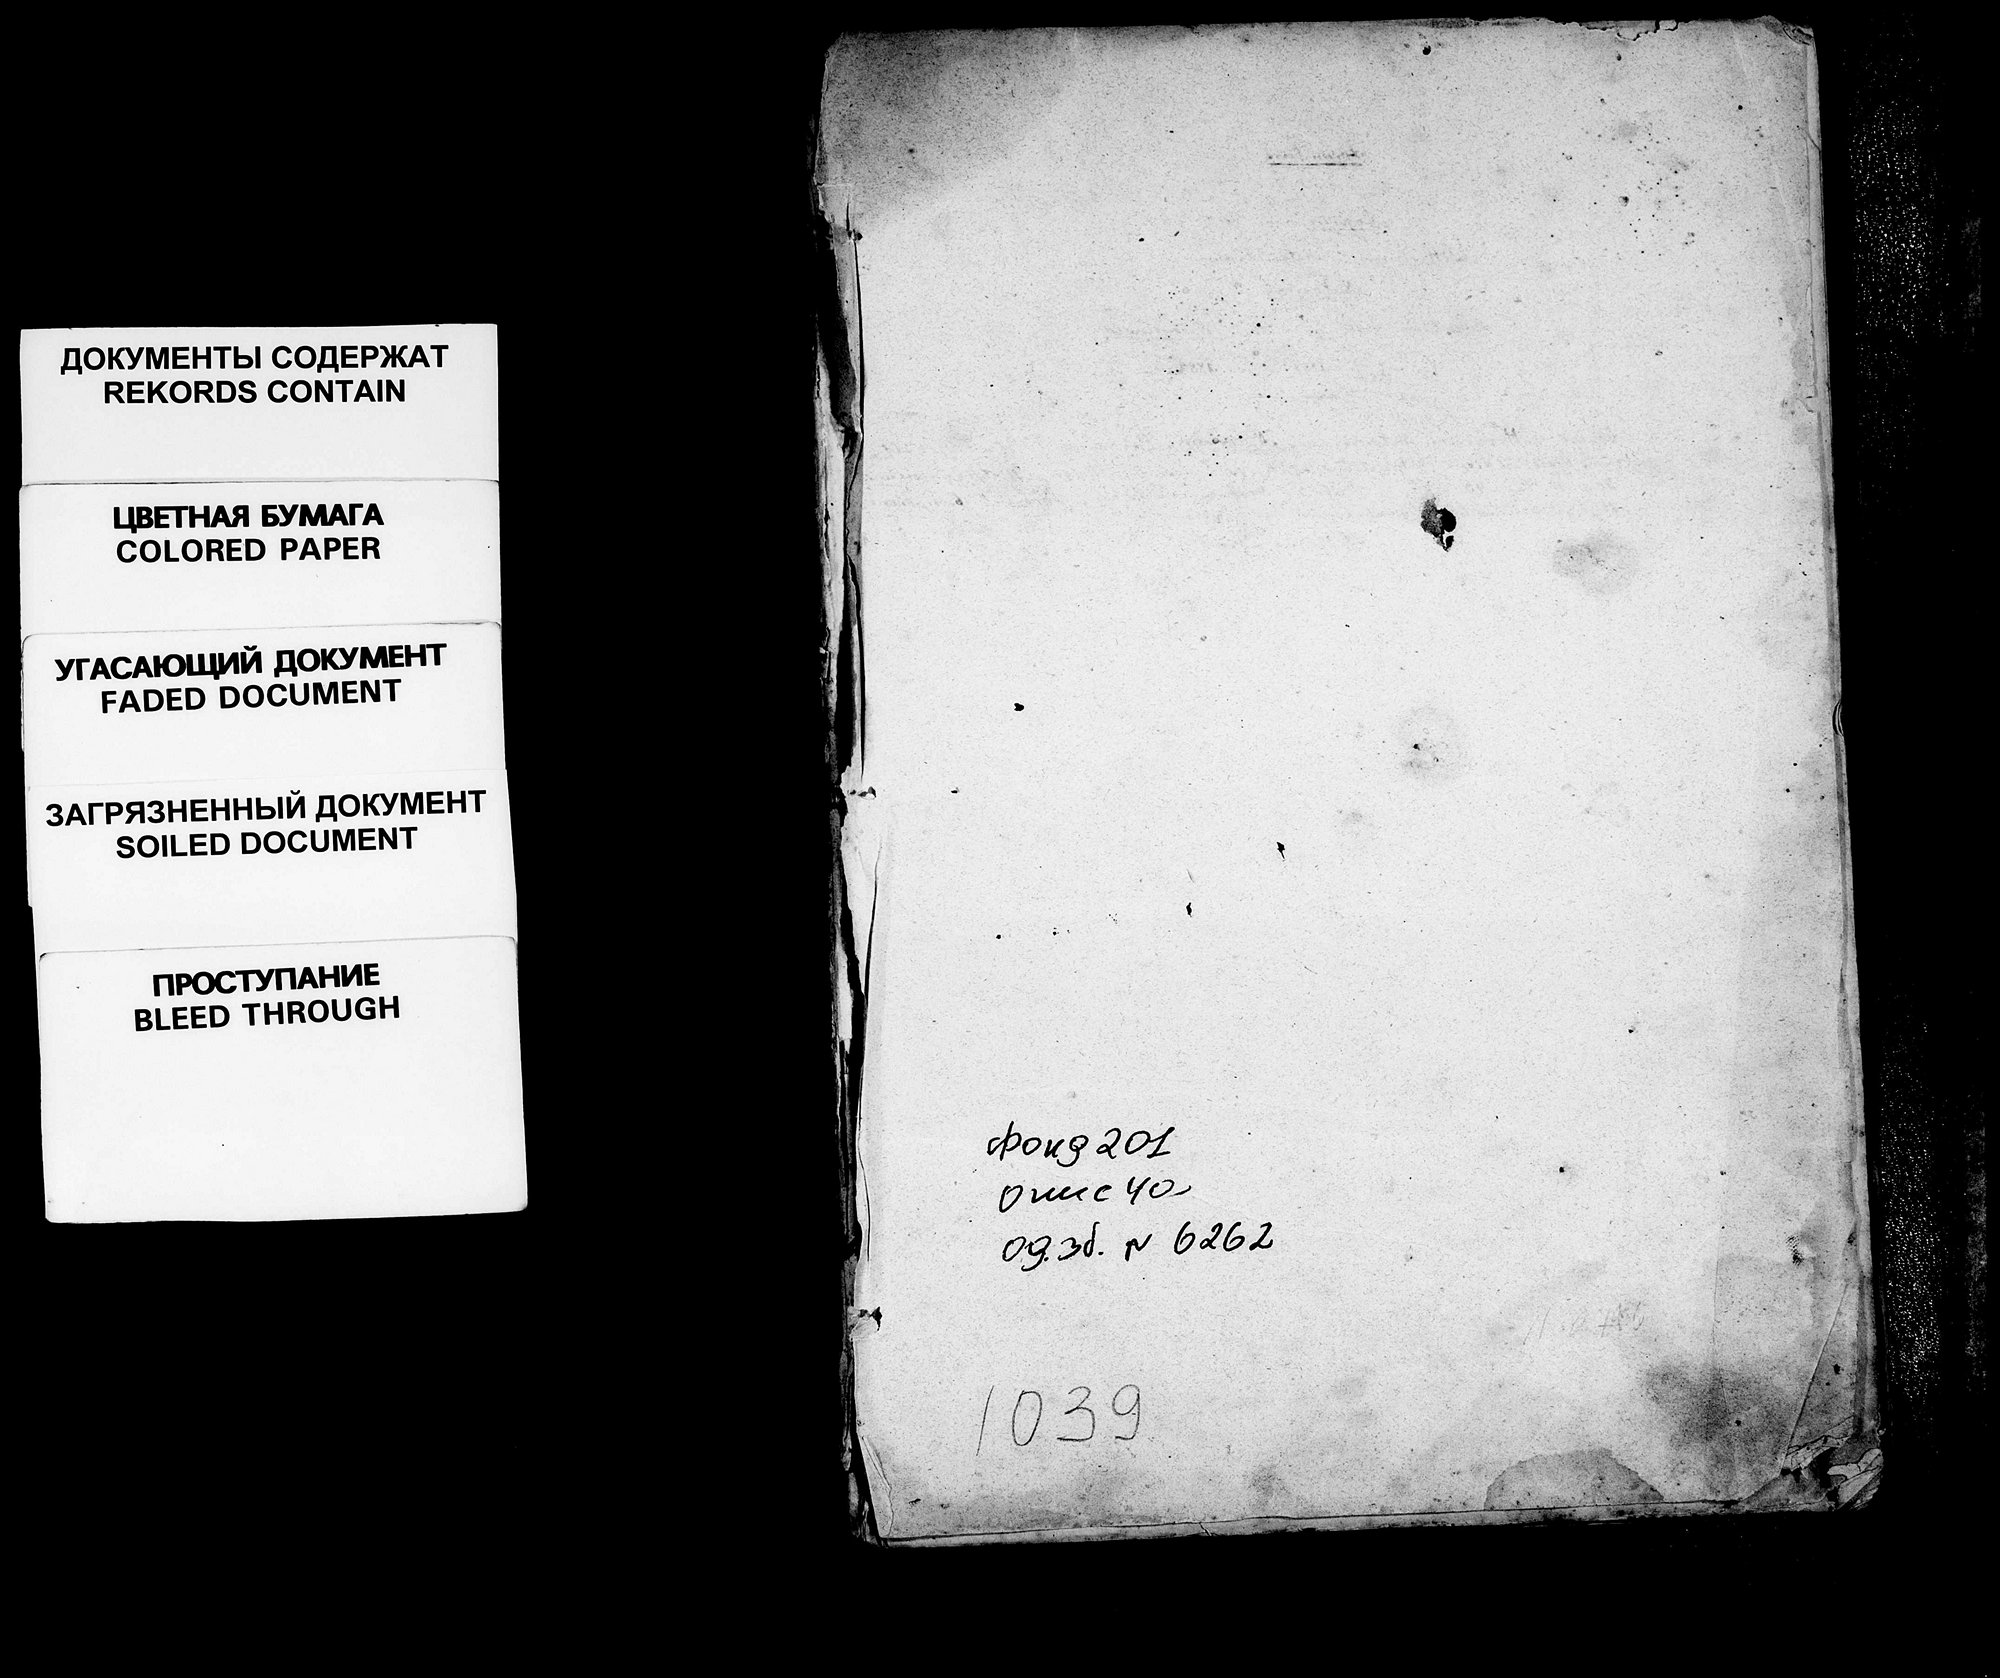 ДОКУМЕНТЫ СОДЕРЖАТ
REKORDS CONTAIN
ЦВЕТНАЯ БУМАГА
COLORED PAPER
УГАСАЮЩИЙ ДОКУМЕНТ
FADED DOCUMENT
ЗАГРЯЗНЕННЫЙ ДОКУМЕНТ
SOILED DOCUMENT
ПРОСТУПАНИЕ
BLEED THROUGH
фонд 201
опис 40
од.зб. N 6262
1039